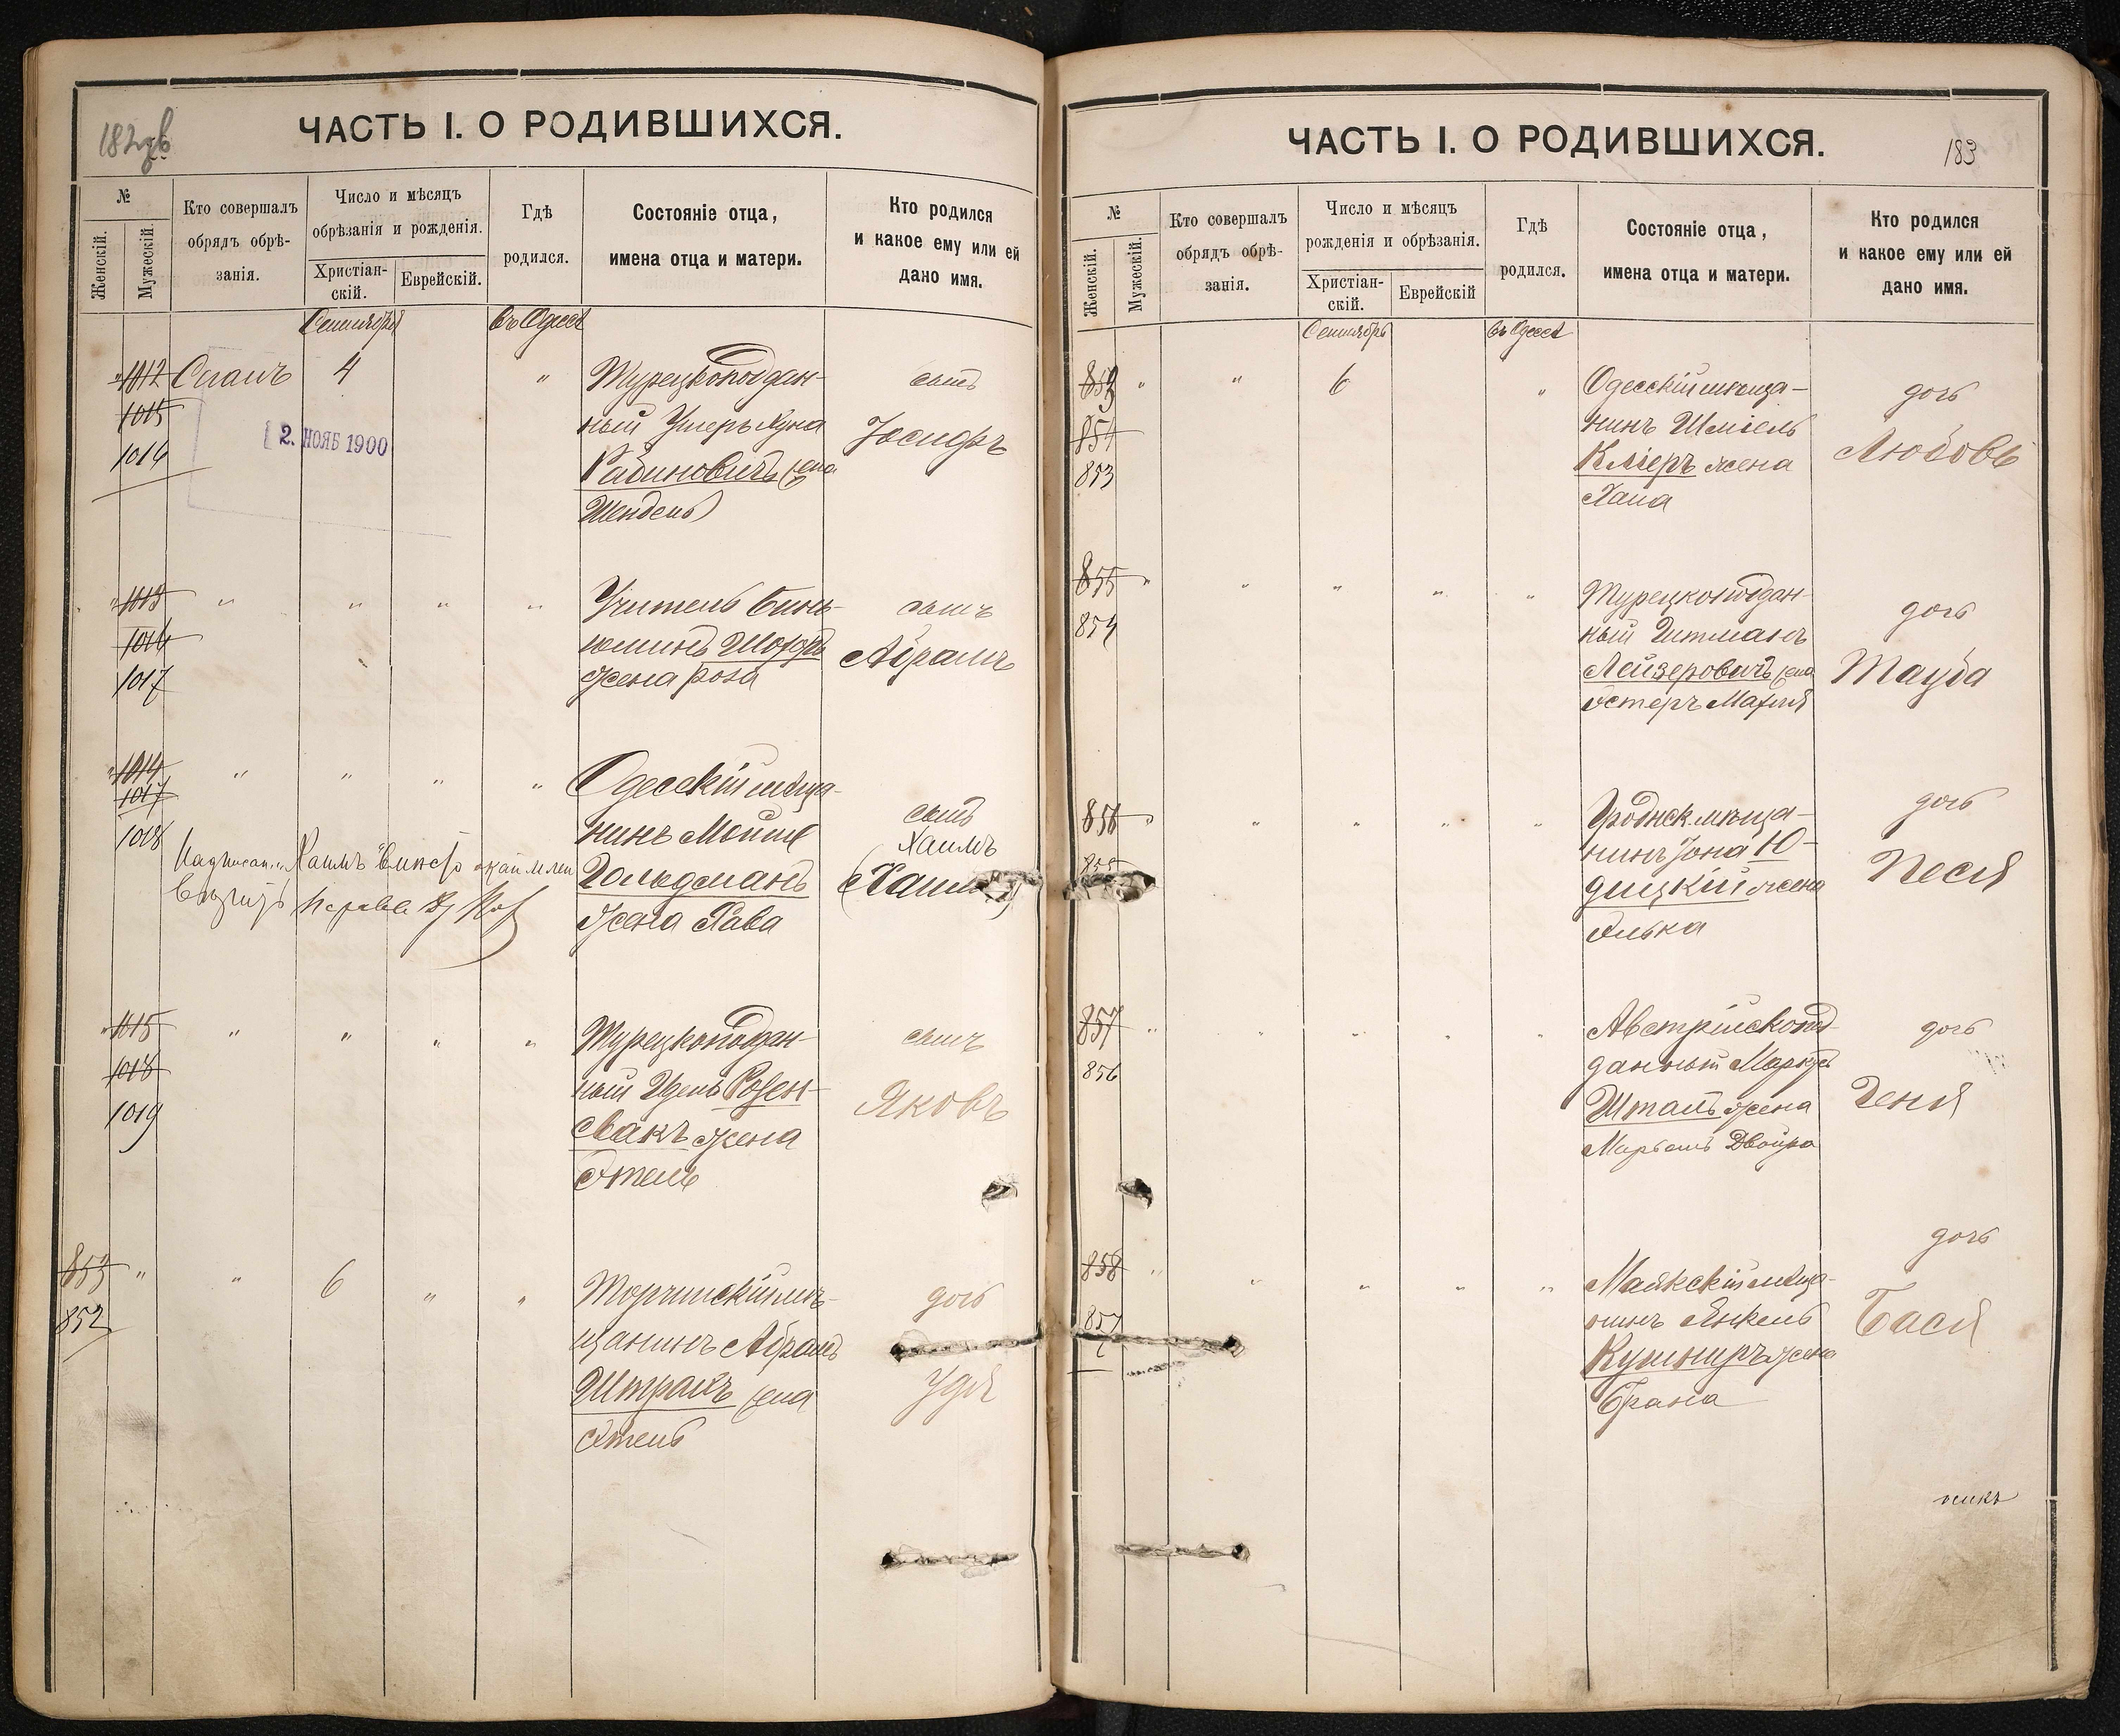 182 об
ЧАСТЬ I. О РОДИВШИХСЯ.
№
Женскій.
Мужескій.
Кто совершалъ
обрядъ обрѣ-
занія.
Число и мѣсяцъ
обрѣзанія и рожденія.
Христіан-
скій.
Еврейскій.
Гдѣ
родился.
Состояніе отца,
имена отца и матери.
Кто родился
и какое ему или ей
дано имя.
Сентябрь
въ Одессѣ
" 1012
1015
1016
4
"
2. НОЯБ 1900
Турецкоподдан-
ный Ушеръ Луна
Рабиновичъ жена
Шендель
сынъ
Іосифъ
" 1013
1016
1017
" " " "
Учитель Бинь-
юминъ Шорръ
жена Роза
сынъ
Абрамъ
" 1014
1017
1018
" " " "
Одесскій мѣща-
нинъ Мойше
Гольдманъ
жена Хава
сынъ
Хаимъ
Хаимъ
" 1015
1018
1019
" " " "
Турецкоподдан-
ный Идель Розен-
свакъ жена
Этель
сынъ
Яковъ
853 "
852
" 6 " "
Торчинскій мѣ-
щанинъ Абрамъ
Штракъ жена
Этель
дочь
Удя
183
ЧАСТЬ I. О РОДИВШИХСЯ.
№
Женскій.
Мужескій.
Кто совершалъ
обрядъ обрѣ-
занія.
Число и мѣсяцъ
рожденія и обрѣзанія.
Христіан-
скій.
Еврейскій
Гдѣ
родился.
Состояніе отца,
имена отца и матери.
Кто родился
и какое ему или ей
дано имя.
Сентябрь
въ Одессѣ
"
854
853
" 6 "
Одесскій мѣща-
нинъ Шміель
Кліеръ жена
Хана
дочь
Любовь
855 "
854
" " " "
Турецкоподдан-
ный
Лейзеровичъ жена
Эстеръ Маріи
дочь
Тауба
856 "
855
" " " "
Гроднск. мѣща-
нинъ Іона Ю-
дицкій жена
Элька
дочь
Песя
857 "
856
" " " "
Австрійскопод-
данный Маркусъ
Штамъ жена
Марьемъ Двойра
дочь
Геня
858 "
857
" " " "
Маякскій мѣща-
нинъ Янкель
Кушниръ жена
Брана
дочь
Бася